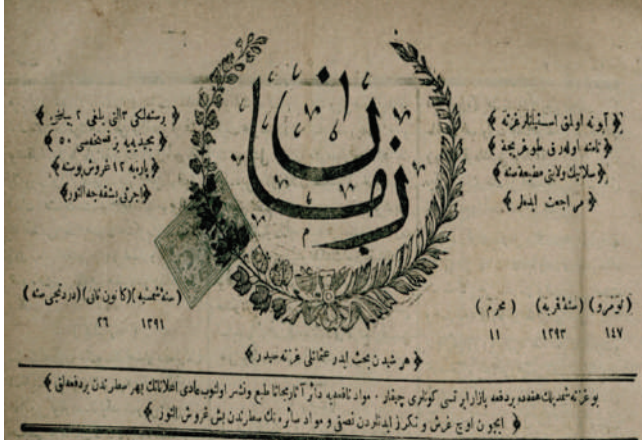 زمان
﴿ آبونه اولمق استیانلر غزته ﴾
﴿ نامنه اوله‌رق طوغریجه ﴾
﴿ سلانیك ولایتی مطبعه‌سنه ﴾
﴿ مراجعت ایدرلر ﴾
﴿ برسنه‌لكی ٣ التی یلغی ٢ بیاض ﴾
﴿ مجیدیه‌یه بر نسخه‌سی ٥٠ ﴾
﴿ پاره‌یه ١٢ غروش پوسته ﴾
﴿ اجرتی بشقه‌جه النور ﴾
(نومرو) (سنۀ قمریه) (محرم)
١٤٧ ١٢٩٣ ١١
(سنۀ شمسیه) (كانون ثانی) (دردنجی سنه)
١٢٩١ ٢٦
﴿ هر شیدن بحث ایدر عثمانلی غزته‌سیدر ﴾
بو غزته شمدیلك هفته‌ده بردفعه بازار ایرتسی كونلری چیقار ٠ مواد نافعه‌یه دائر آثار مجاناً طبع ونشر اولنوب عادی اعلاناتك بهر سطرندن بردفعه‌لق ﴾
﴿ ایچون اوچ غرش و تكرر ایدنلردن نصفی و مواد سائره‌نك سطرندن بش غروش النور ٠ ﴾